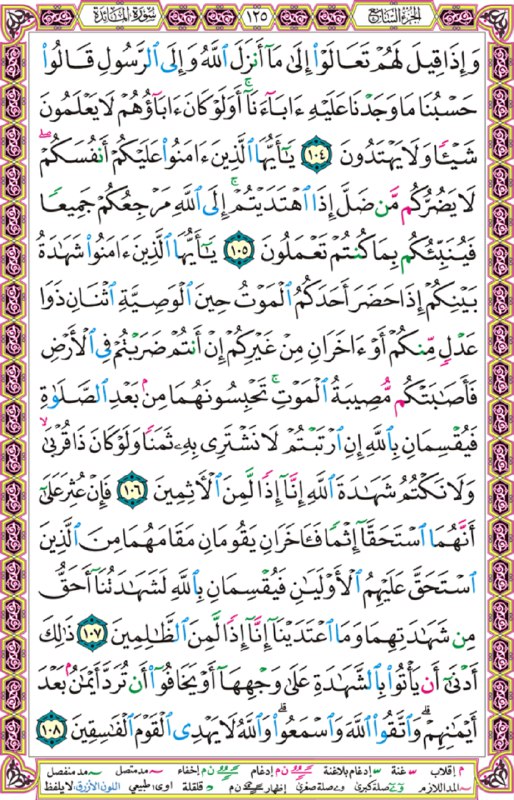 الجزء السابع ١٢٥ سورة المائدة
وَإِذَا قِيلَ لَهُمْ تَعَالَوْا۟ إِلَىٰ مَآ أَنزَلَ ٱللَّهُ وَإِلَى ٱلرَّسُولِ قَالُوا۟
حَسْبُنَا مَا وَجَدْنَا عَلَيْهِ ءَابَآءَنَآ ۚ أَوَلَوْ كَانَ ءَابَآؤُهُمْ لَا يَعْلَمُونَ
شَيْـًٔا وَلَا يَهْتَدُونَ ١٠٤ يَـٰٓأَيُّهَا ٱلَّذِينَ ءَامَنُوا۟ عَلَيْكُمْ أَنفُسَكُمْ ۖ
لَا يَضُرُّكُم مَّن ضَلَّ إِذَا ٱهْتَدَيْتُمْ ۚ إِلَى ٱللَّهِ مَرْجِعُكُمْ جَمِيعًا
فَيُنَبِّئُكُم بِمَا كُنتُمْ تَعْمَلُونَ ١٠٥ يَـٰٓأَيُّهَا ٱلَّذِينَ ءَامَنُوا۟ شَهَـٰدَةُ
بَيْنِكُمْ إِذَا حَضَرَ أَحَدَكُمُ ٱلْمَوْتُ حِينَ ٱلْوَصِيَّةِ ٱثْنَانِ ذَوَا
عَدْلٍ مِّنكُمْ أَوْ ءَاخَرَانِ مِنْ غَيْرِكُمْ إِنْ أَنتُمْ ضَرَبْتُمْ فِى ٱلْأَرْضِ
فَأَصَـٰبَتْكُم مُّصِيبَةُ ٱلْمَوْتِ ۚ تَحْبِسُونَهُمَا مِنۢ بَعْدِ ٱلصَّلَوٰةِ
فَيُقْسِمَانِ بِٱللَّهِ إِنِ ٱرْتَبْتُمْ لَا نَشْتَرِى بِهِۦ ثَمَنًا وَلَوْ كَانَ ذَا قُرْبَىٰ ۙ
وَلَا نَكْتُمُ شَهَـٰدَةَ ٱللَّهِ إِنَّآ إِذًا لَّمِنَ ٱلْـَٔاثِمِينَ ١٠٦ فَإِنْ عُثِرَ عَلَىٰٓ
أَنَّهُمَا ٱسْتَحَقَّآ إِثْمًا فَـَٔاخَرَانِ يَقُومَانِ مَقَامَهُمَا مِنَ ٱلَّذِينَ
ٱسْتَحَقَّ عَلَيْهِمُ ٱلْأَوْلَيَـٰنِ فَيُقْسِمَانِ بِٱللَّهِ لَشَهَـٰدَتُنَآ أَحَقُّ
مِن شَهَـٰدَتِهِمَا وَمَا ٱعْتَدَيْنَآ إِنَّآ إِذًا لَّمِنَ ٱلظَّـٰلِمِينَ ١٠٧ ذَٰلِكَ
أَدْنَىٰٓ أَن يَأْتُوا۟ بِٱلشَّهَـٰدَةِ عَلَىٰ وَجْهِهَآ أَوْ يَخَافُوٓا۟ أَن تُرَدَّ أَيْمَـٰنٌۢ بَعْدَ
أَيْمَـٰنِهِمْ ۗ وَٱتَّقُوا۟ ٱللَّهَ وَٱسْمَعُوا۟ ۗ وَٱللَّهُ لَا يَهْدِى ٱلْقَوْمَ ٱلْفَـٰسِقِينَ ١٠٨
م إقلاب س غنة إدغام بلاغنة ن م إدغام ن م إخفاء مد متصل مد منفصل
المد اللازم و ے صلة كبرى و ے صلة صغرى إظهار ن م قلقلة اوى: طبيعي اللون الأزرق: لا يلفظ